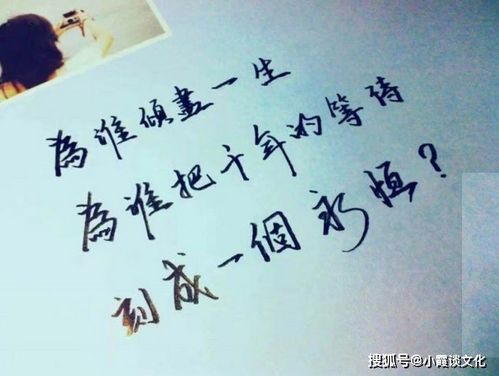 為誰傾盡一生
為誰把千年的等待
刻成一個永恆？
搜狐号@小霞谈文化